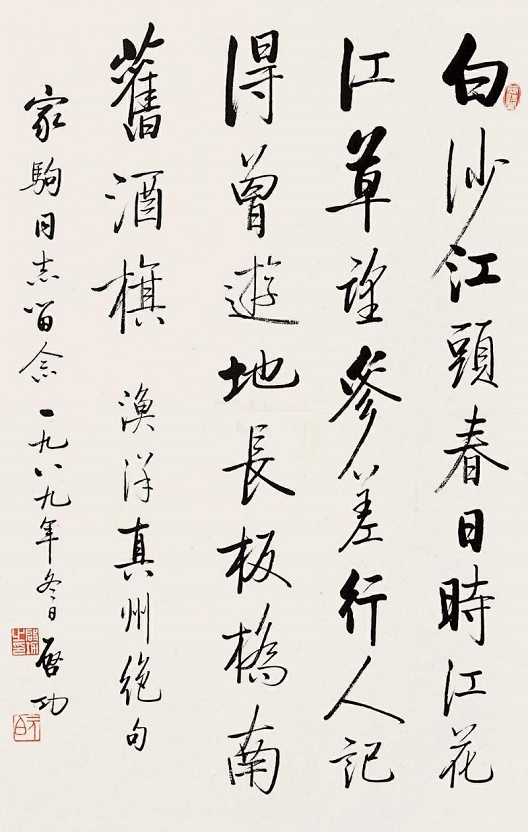 白沙江頭春日時江花
江草望參差行人記
得曾遊地長板橋南
舊酒旗 漁洋真州絕句
家駒同志留念 一九八九年冬日 啓功